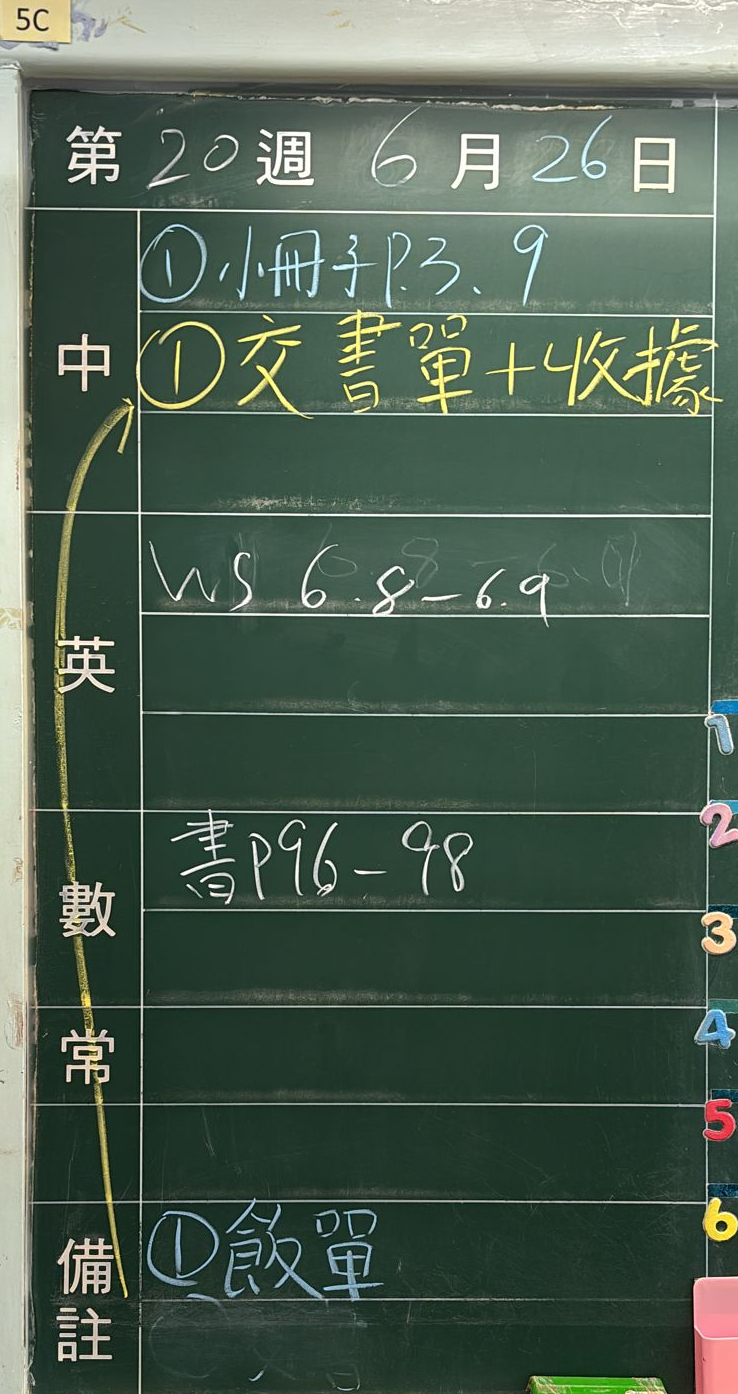 5C
第20週 6月26日
中
①小冊子P.3、9
①交書單+收據
英
WS 6.8-6.9
數
書P96-98
常
備註
①飯單
1
2
3
4
5
6